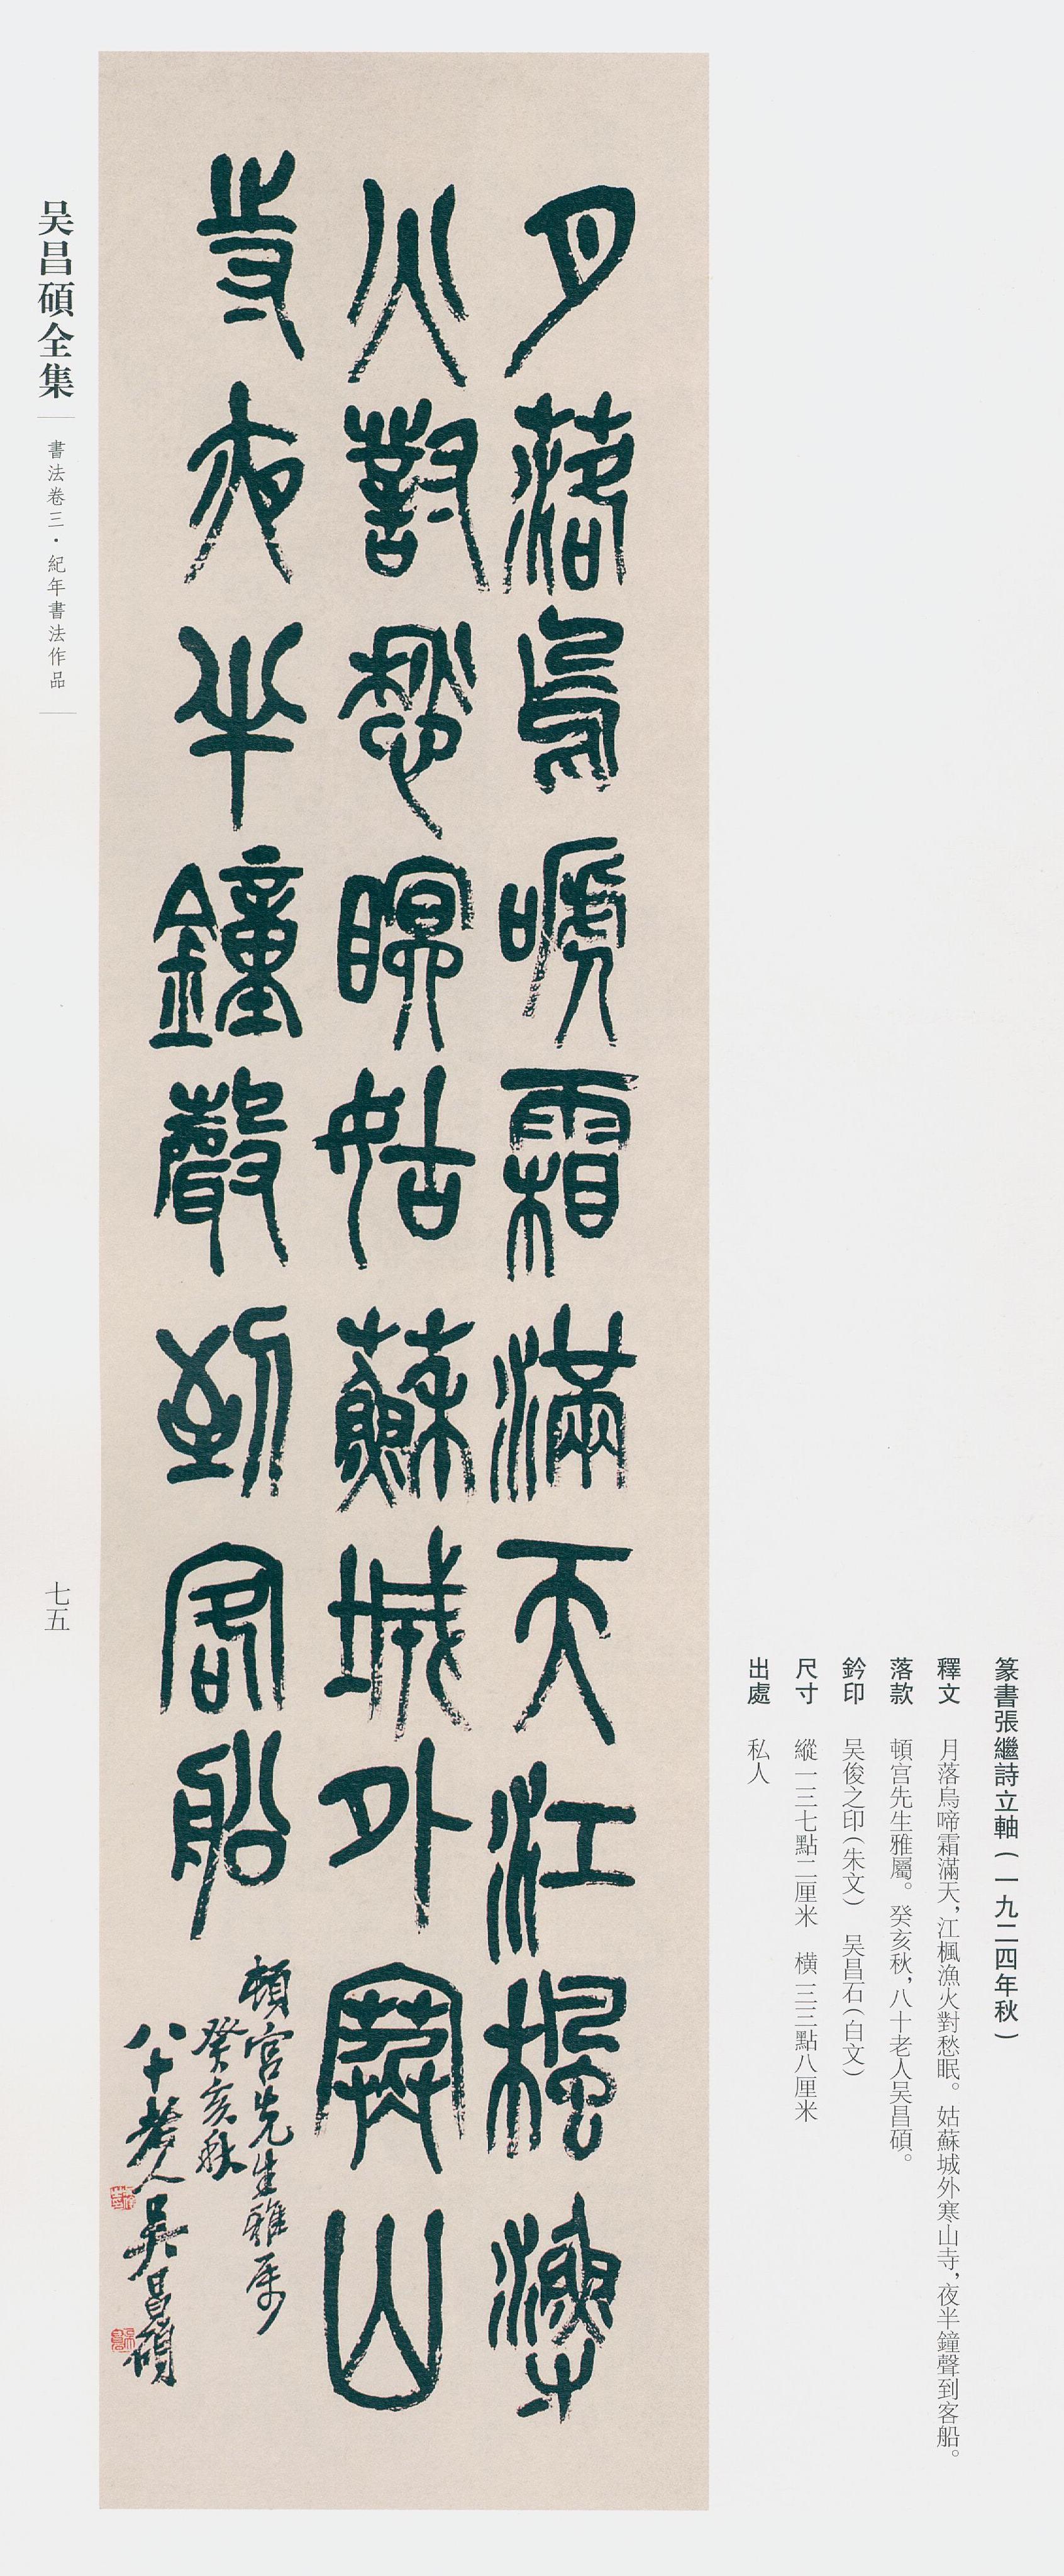 篆書張繼詩立軸（一九二四年秋）
釋文　月落烏啼霜滿天，江楓漁火對愁眠。姑蘇城外寒山寺，夜半鐘聲到客船。
落款　頓宫先生雅屬。癸亥秋，八十老人吴昌碩。
鈐印　吴俊之印（朱文）　吴昌石（白文）
尺寸　縱一三七點二厘米　横三三點八厘米
出處　私人
月落烏嗁霜滿天江楓漁
火對愁瞑姑蘇城外寒山
寺夜半鐘聲到客船
頓宮先生雅属
癸亥秋
八十老人吳昌碩
吴昌碩全集
書法卷三·紀年書法作品
七五